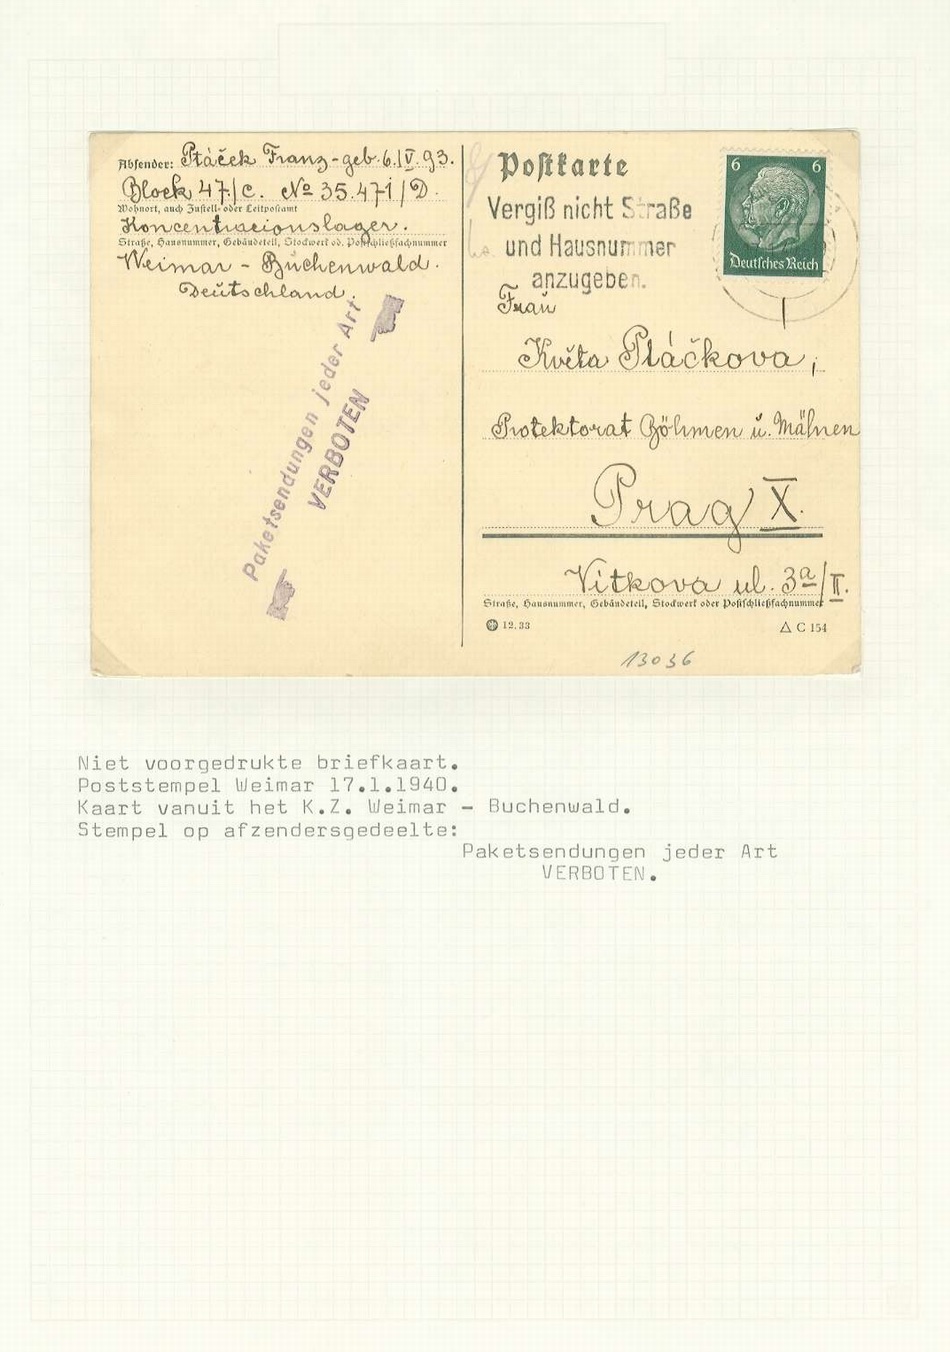 Absender: Ptáček Franz - geb. 6.IV.93.
Block 47/c. No 35.471/D.
Wohnort, auch Zustell- oder Leitpostamt
Koncentracionslager.
Straße, Hausnummer, Gebäudeteil, Stockwerk od. Postschließfachnummer
Weimar - Buchenwald.
Deutschland.
Paketsendungen jeder Art
VERBOTEN
Postkarte
Vergiß nicht Straße
und Hausnummer
anzugeben.
6 6
Deutsches Reich
Frau
Květa Ptáčkova,
Protektorat Böhmen u. Mähren
Prag X.
Vitkova ul. 3a/II.
Straße, Hausnummer, Gebäudeteil, Stockwerk oder Postschließfachnummer
12.33
C 154
13036
Niet voorgedrukte briefkaart.
Poststempel Weimar 17.1.1940.
Kaart vanuit het K.Z. Weimar - Buchenwald.
Stempel op afzendersgedeelte:
Paketsendungen jeder Art
VERBOTEN.